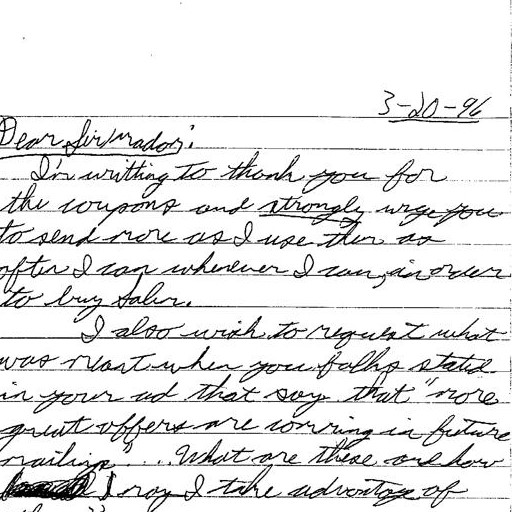 3-20-96
Dear Sir/mador:
I'm writting to thank you for
the coupons and strongly urge you
to send more as I use them as
often I can whenever I can, in order
to buy Salem.
I also wish to request what
was meant when you folks stated
in your ad that say that "more
great offers are comming in future
mailings"... What are these and how
may I take advantage of